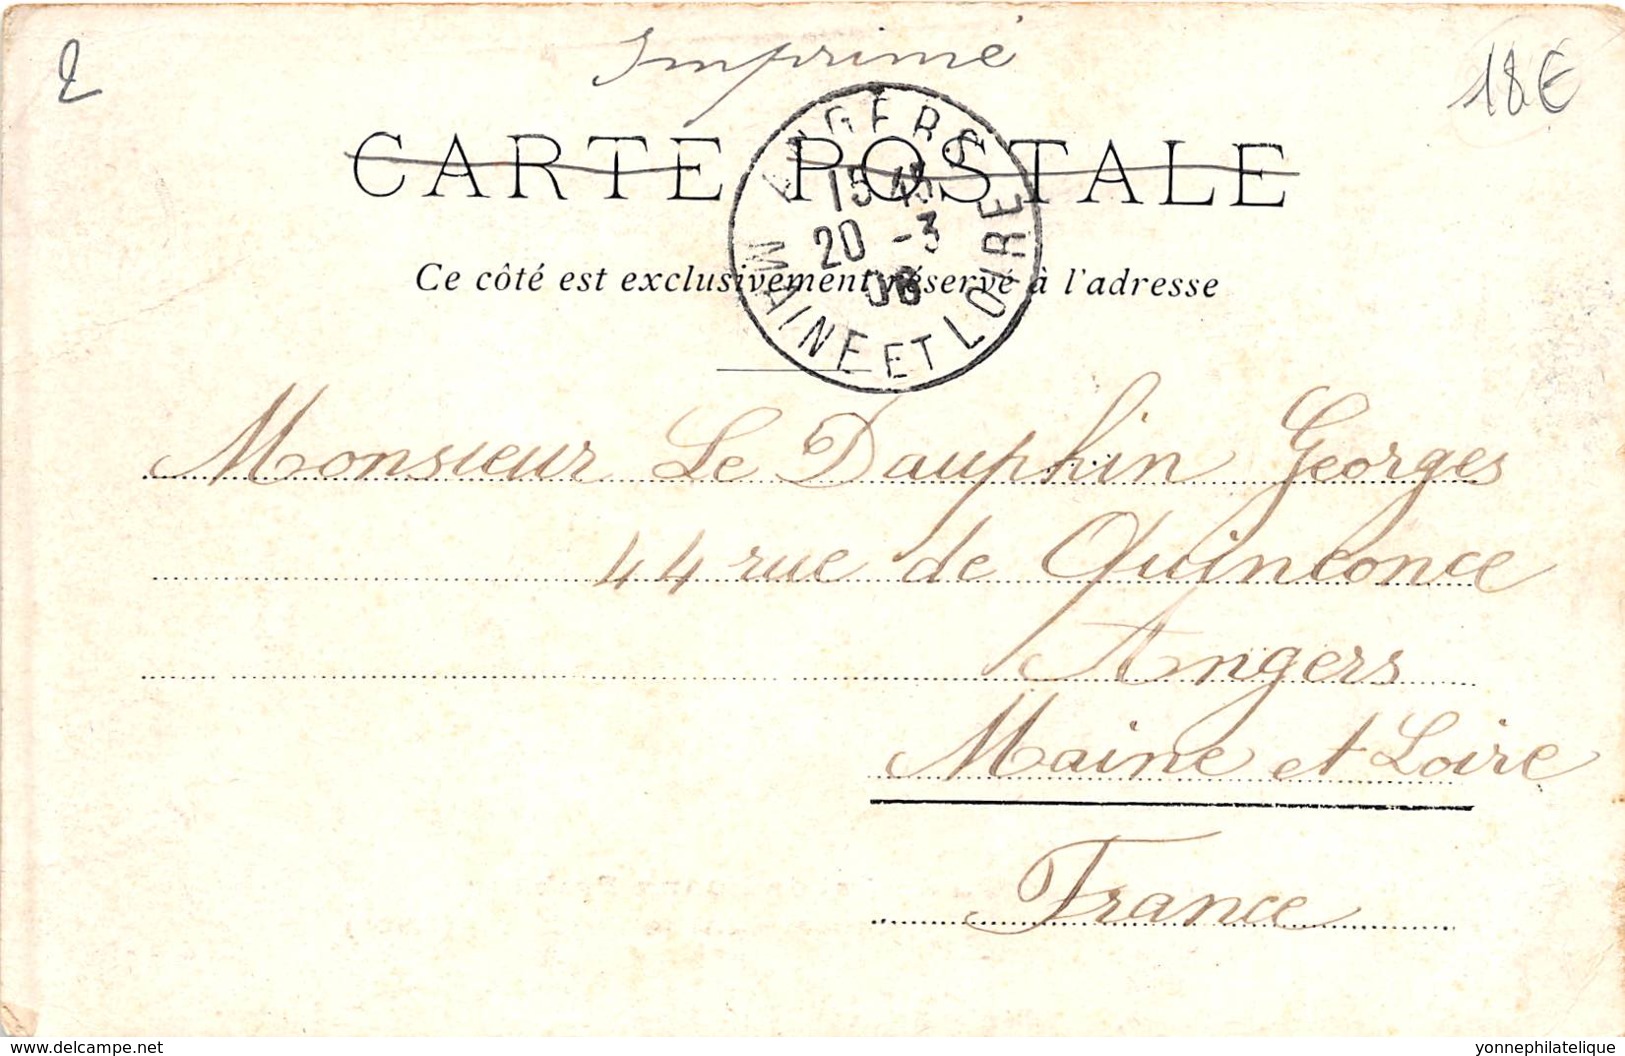 Imprimé
2
18€
CARTE POSTALE
Ce côté est exclusivement réservé à l'adresse
ANGERS
15 45
20 -3
MAINE ET LOIRE
Monsieur Le Dauphin Georges
44 rue de Quinconce
Angers
Maine et Loire
France
www.delcampe.net
yonnephilatelique